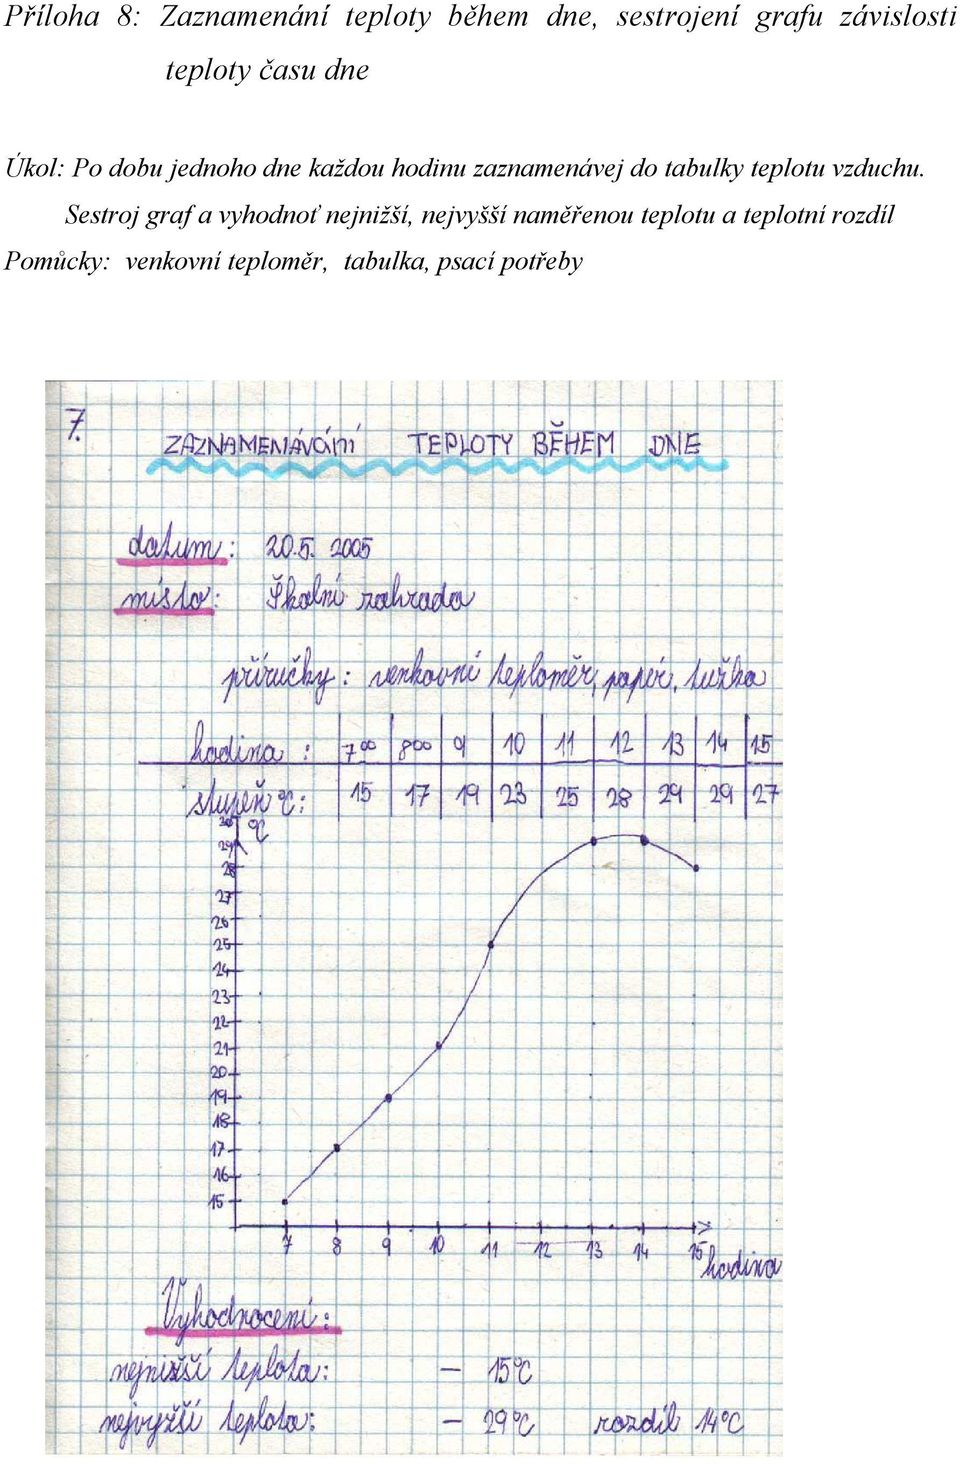 Příloha 8: Zaznamenání teploty během dne, sestrojení grafu závislosti
teploty času dne
Úkol: Po dobu jednoho dne každou hodinu zaznamenávej do tabulky teplotu vzduchu.
Sestroj graf a vyhodnoť nejnižší, nejvyšší naměřenou teplotu a teplotní rozdíl
Pomůcky: venkovní teploměr, tabulka, psací potřeby
7.
ZAZNAMENÁVÁNÍ TEPLOTY BĚHEM DNE
datum: 20.5. 2005
místo: Školní zahrada
příručky: venkovní teploměr, papír, tužka
hodina: 7⁰⁰ 8⁰⁰ 9 10 11 12 13 14 15
stupeň °C: 15 17 19 23 25 28 29 29 27
30 °C
29
28
27
26
25
24
23
22
21
20
19
18
17
16
15
7 8 9 10 11 12 13 14 15 hodina
Vyhodnocení:
nejnižší teplota: – 15°C
nejvyšší teplota: – 29°C rozdíl 14°C